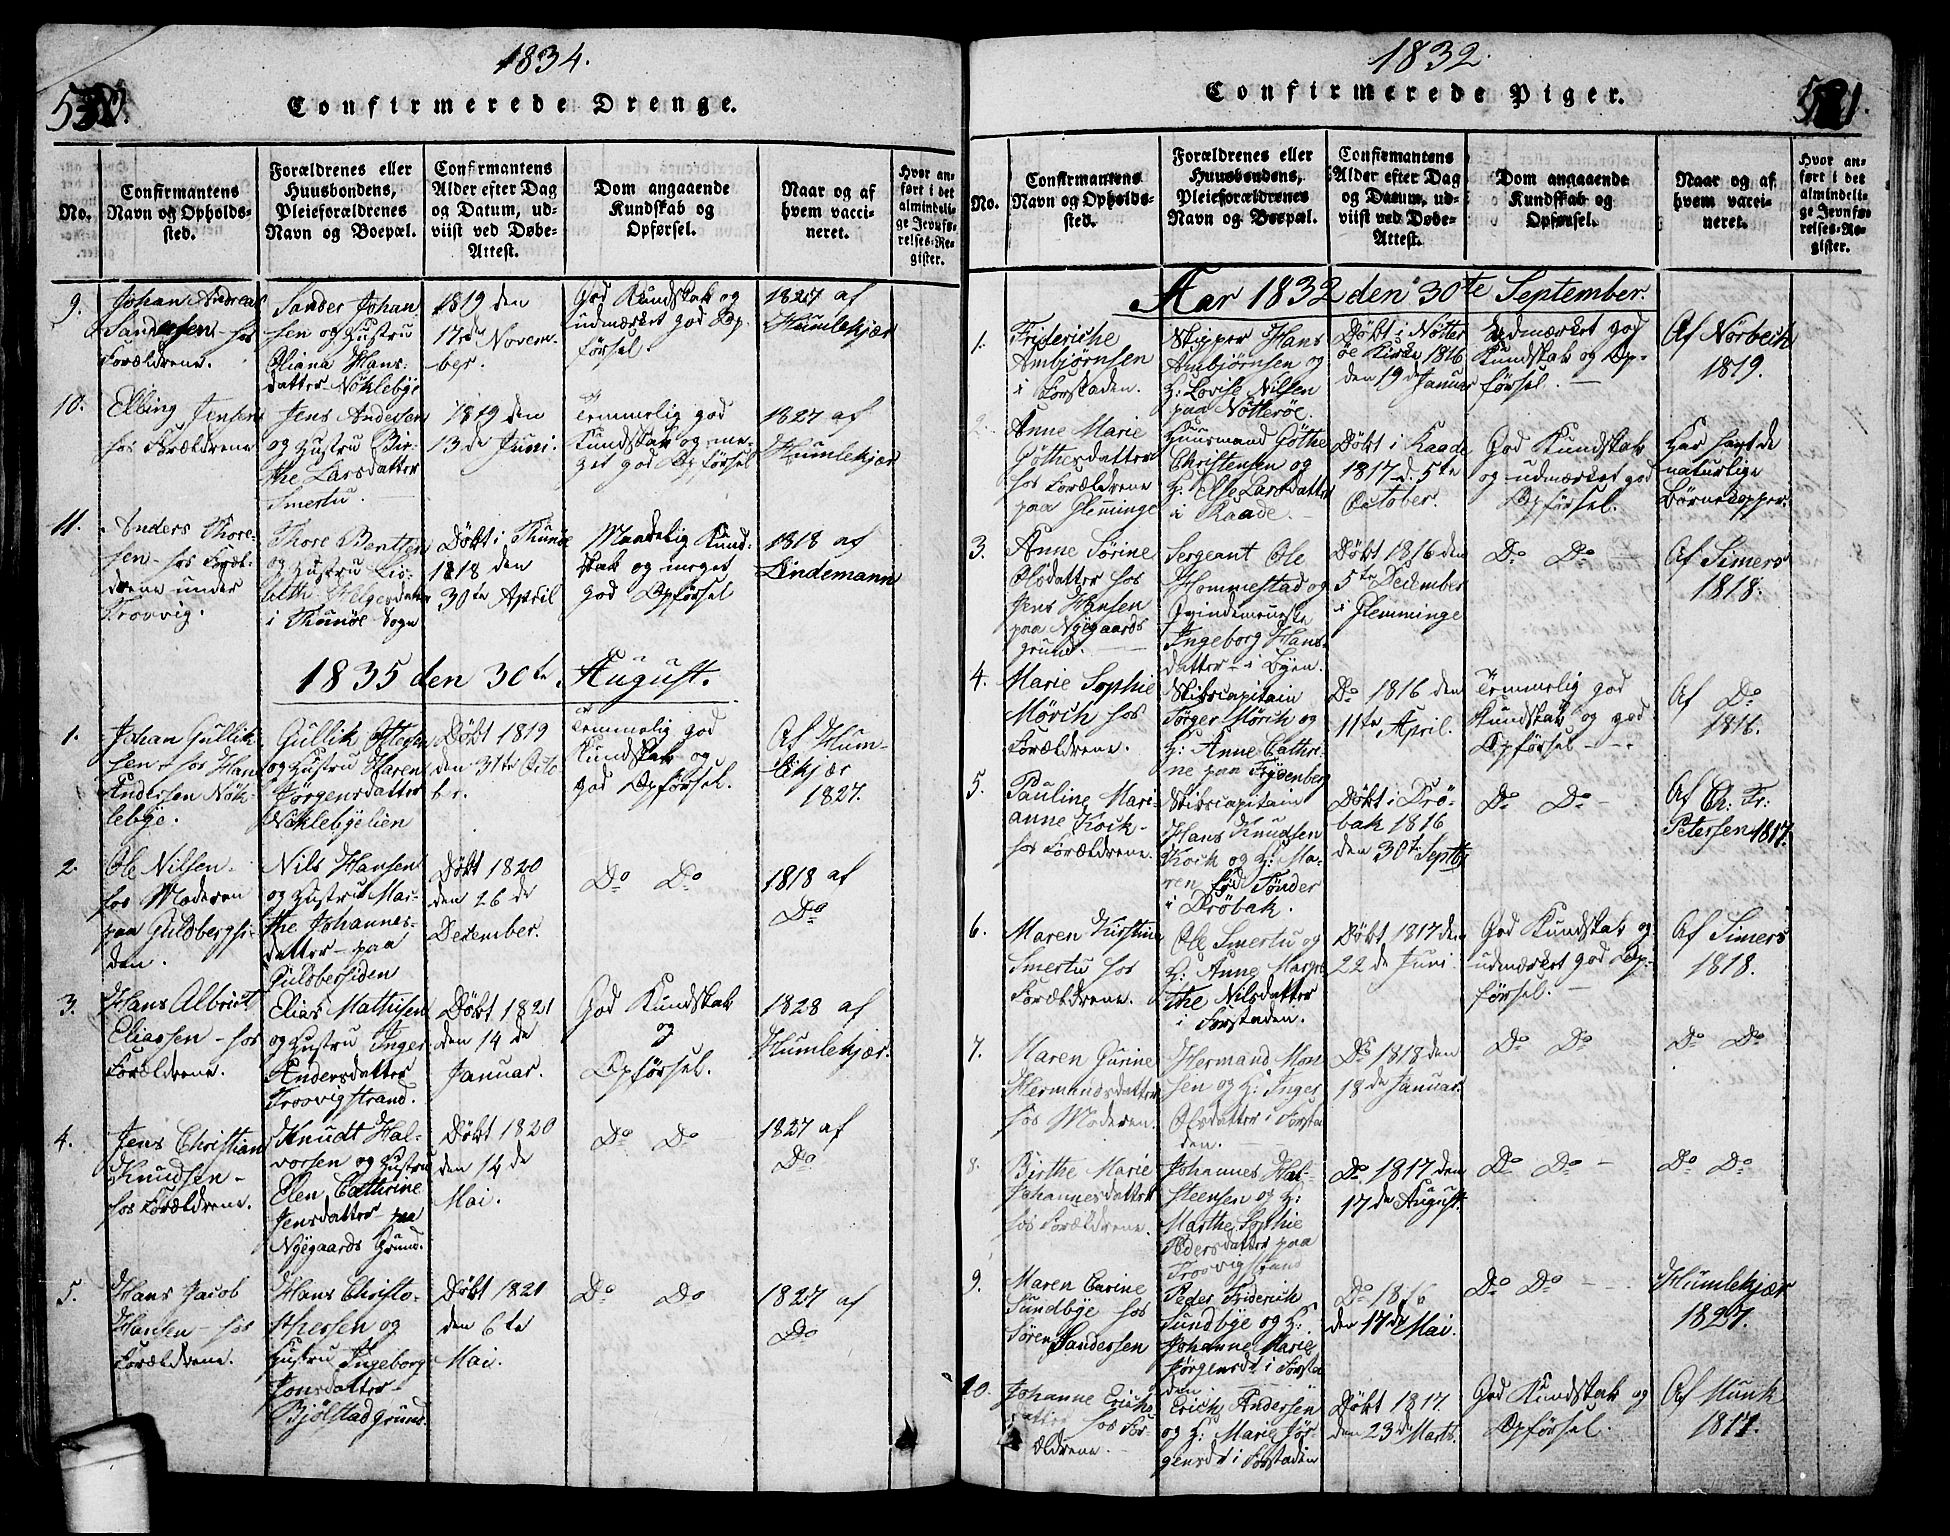 1834.
Confirmerede Drenge.
No.
Confirmantens
Navn og Opholds-
sted.
Forældrenes eller
Huusbondens,
Pleieforældrenes
Navn og Boepæl.
Confirmantens
Alder efter Dag
og Datum, ud-
viist ved Døbe-
Attest.
Dom angaaende
Kundskab og
Opførsel.
Naar og af
hvem vacci-
neret.
Hvor an-
ført i det
almindeli-
ge Jevnfø-
relses-Re-
gister.
9.
Johan Andreas
Sandersen - hos
Forældrene.
Sander Johan
sen og Hustru
Oliana Hans-
datter Nöklebÿe
1819 den
17de Novem-
ber.
God Kundskab og
udmærket god Op-
försel.
1827 af
Humlekjær
10.
Elling Jensen
hos Forældrene
Jens Andersen
og Hustru Bir-
the Larsdatter
Smertu.
1819 den
13de Juni.
Temmelig god
Kundskab og me-
get god Opförsel
1827 af
Humlekjær
11.
Anders Thore-
sen - hos Foræl-
drene under
Trosvig.
Thore Bentsen
og Hustru Lis-
beth Helgesdatter
i Thunöe Sogn
Döbt i Thunöe
1818 den
30te April
Maadelig Kund-
skab og meget
god Opförsel
1818 af
Lindemann
1835 den 30te August.
1.
Johan Gullik-
sen - hos Hans
Andersen Nök-
lebÿe.
Gullik Ottersen
og Hustru Maren
Jörgensdatter
Nöklebÿelien
Döbt 1819
den 31te Octo
ber.
Temmelig god
Kundskab og
god Opförsel.
Af Hum-
lekjær
1827.
2.
Ole Nilsen
hos Moderen
paa Guldbergsi-
den.
Nils Hansen
og Hustru Mar-
the Johannes-
datter - paa
Guldbersiden
Döbt 1820
den 26de
December.
Do Do
1818 af
Do
3.
Hans Albrict
Eliassen - hos
Forældrene.
Elias Mathisen
og Hustru Inger
Andersdatter
Trosvigstrand.
Döbt 1821
den 14de
Januar.
God Kundskab
og
Opförsel.
1828 af
Humlekjær.
4.
Jens Christian
Knudsen -
hos Forældrene.
Knudt Hal-
vorsen og Hustru
Elen Cathrine
Jensdatter paa
Nÿegaards Grund.
Döbt 1820
den 14de
Mai.
Do Do
1827 af
Do
5.
Hans Jacob
Hansen - hos
Forældrene.
Hans Christo-
phersen og
Hustru Ingeborg
Jonsdatter
Bjölstad grund.
Döbt 1821
den 6te
Mai.
Do Do
1827 af
Do
1832.
Confirmerede Piger.
No.
Confirmantens
Navn og Opholds-
sted.
Forældrenes eller
Huusbondens,
Pleieforældrenes
Navn og Boepæl.
Confirmantens
Alder efter Dag
og Datum, ud-
viist ved Døbe-
Attest.
Dom angaaende
Kundskab og
Opførsel.
Naar og af
hvem vacci-
neret.
Hvor an-
ført i det
almindeli-
ge Jevnfø-
relses-Re-
gister.
Aar 1832 den 30te September.
1.
Frideriche
Ambjörnsen
i Forstaden.
Skipper Hans
Ambjörnsen og
H: Lovise Nilsen
paa Nötteröe.
Döbt i Nötter
öe Kirke 1816
den 19de Januar
Udmærket god
Kundskab og Op-
försel.
Af Nörbech
1819.
2.
Anne Marie
Göthesdatter
hos Forældrene
paa Glemminge
Huusmand Göthe
Christensen og
H: Else Larsdatter
i Raade.
Döbt i Raade
1817 d. 5te
October.
God Kundskab
og udmærket god
Opförsel.
Har havt de
naturlige
Börnekopper.
3.
Anne Sörine
Olsdatter hos
Jens Hansen
paa Nÿegaards
grund.
Sergeant Ole
Hommestad og
Qvindemenske
Ingeborg Hans
datter - i Byen.
Döbt 1816 den
5te December
i Glemminge
Do Do
Af Simers
1818.
4.
Marie Sophie
Mörch hos
Forældrene.
Skibscapitain
Jörger Mörch og
H: Anne Cathri-
ne paa Frÿdenberg
Do 1816 den
11te April.
Temmelig god
Kundskab og god
Opförsel - -
Af Do
1816.
5.
Pauline Mari-
anne Kock -
hos Forældrene.
Skibscapitain
Hans Knudsen
Kock og H: Ma-
ren fød Tönder
i Dröbak.
Döbt i Drö-
bak 1816
den 30te Septbr
Do Do -
Af Ch: Fr:
Petersen 1817.
6.
Maren Kirstine
Smertu hos
Forældrene.
Ole Smertu og
H: Anne Margre
the Nilsdatter
i Forstaden.
Döbt 1817 den
22de Juni
God Kundskab og
udmærket god Op-
försel.
Af Simers
1818.
7.
Maren Gurine
Hermandsdatter
hos Moderen.
Hermand Mon
sen og H: Inger
Olsdatter i Forsta
den.
Do 1818 den
18de Januar.
Do Do
Do Do
8.
Birthe Marie
Johannesdatter
hos Forældrene.
Johannes Hal-
steensen og H:
Marthe Sophie
Pedersdatter paa
Do 1817 den
17de August.
Do Do -
Do Do
9.
Maren Carine
Sundbÿe hos
Sören Sandersen
Peder Friderich
Sundbÿe og H:
Johanne Marie
Jörgensdr i Forsta
den
Do 1816
den 17de Mai.
Do Do -
Humlekjær
1827.
10.
Johanne Erichs
datter hos For-
ældrene.
Erich Andersen
og H: Marie Jör
gensdr i Forstaden
Döbt 1817.
den 23de Marts.
God Kundskab og
Opförsel.
Af Munk
1817.